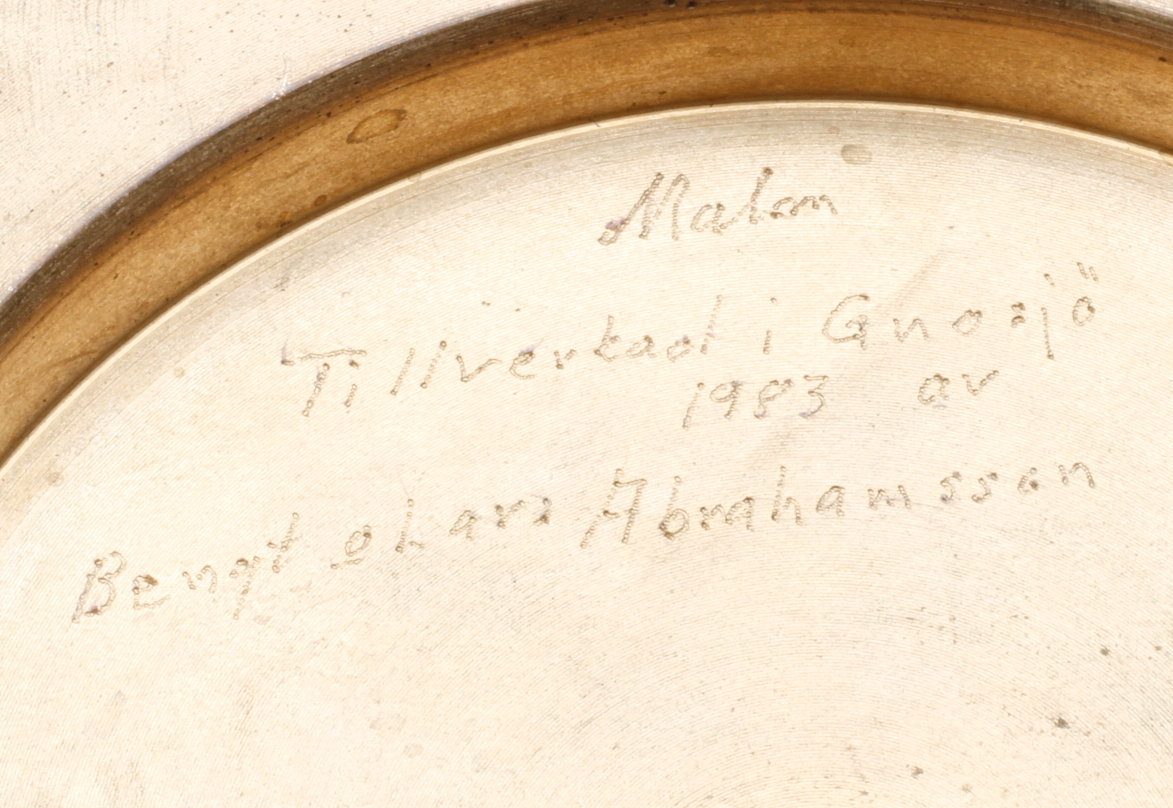 Malm
Tillverkad i Gnosjö
1983 av
Bengt o Lars Abrahamsson